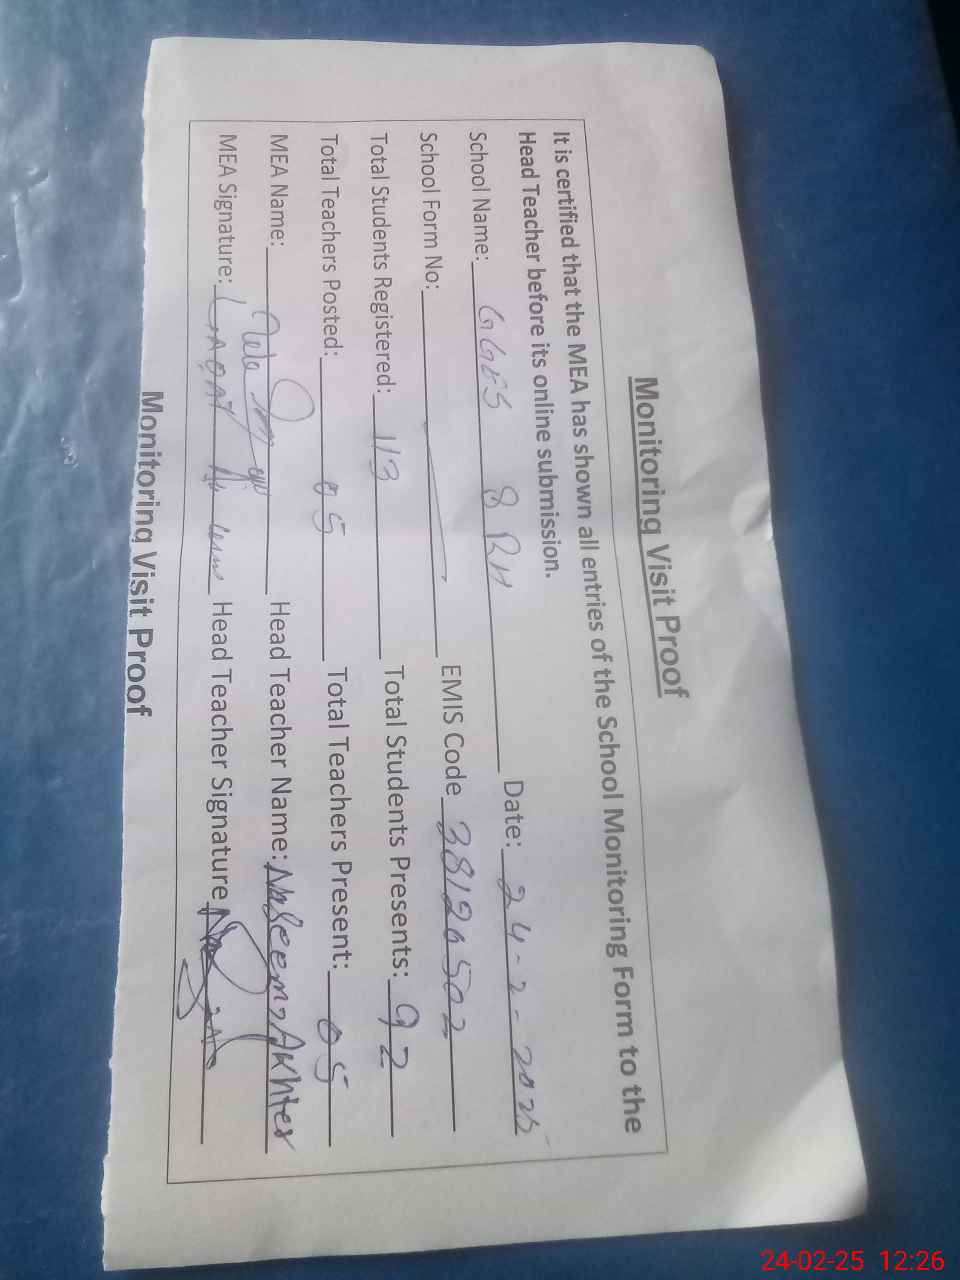 Monitoring Visit Proof
It is certified that the MEA has shown all entries of the School Monitoring Form to the
Head Teacher before its online submission.
School Name: GGES 8 RH Date: 24-2-2025
School Form No: EMIS Code 38120502
Total Students Registered: 113 Total Students Presents: 92
Total Teachers Posted: 05 Total Teachers Present: 05
MEA Name: Head Teacher Name: Naseem Akhter
MEA Signature: Head Teacher Signature
Monitoring Visit Proof
24-02-25 12:26